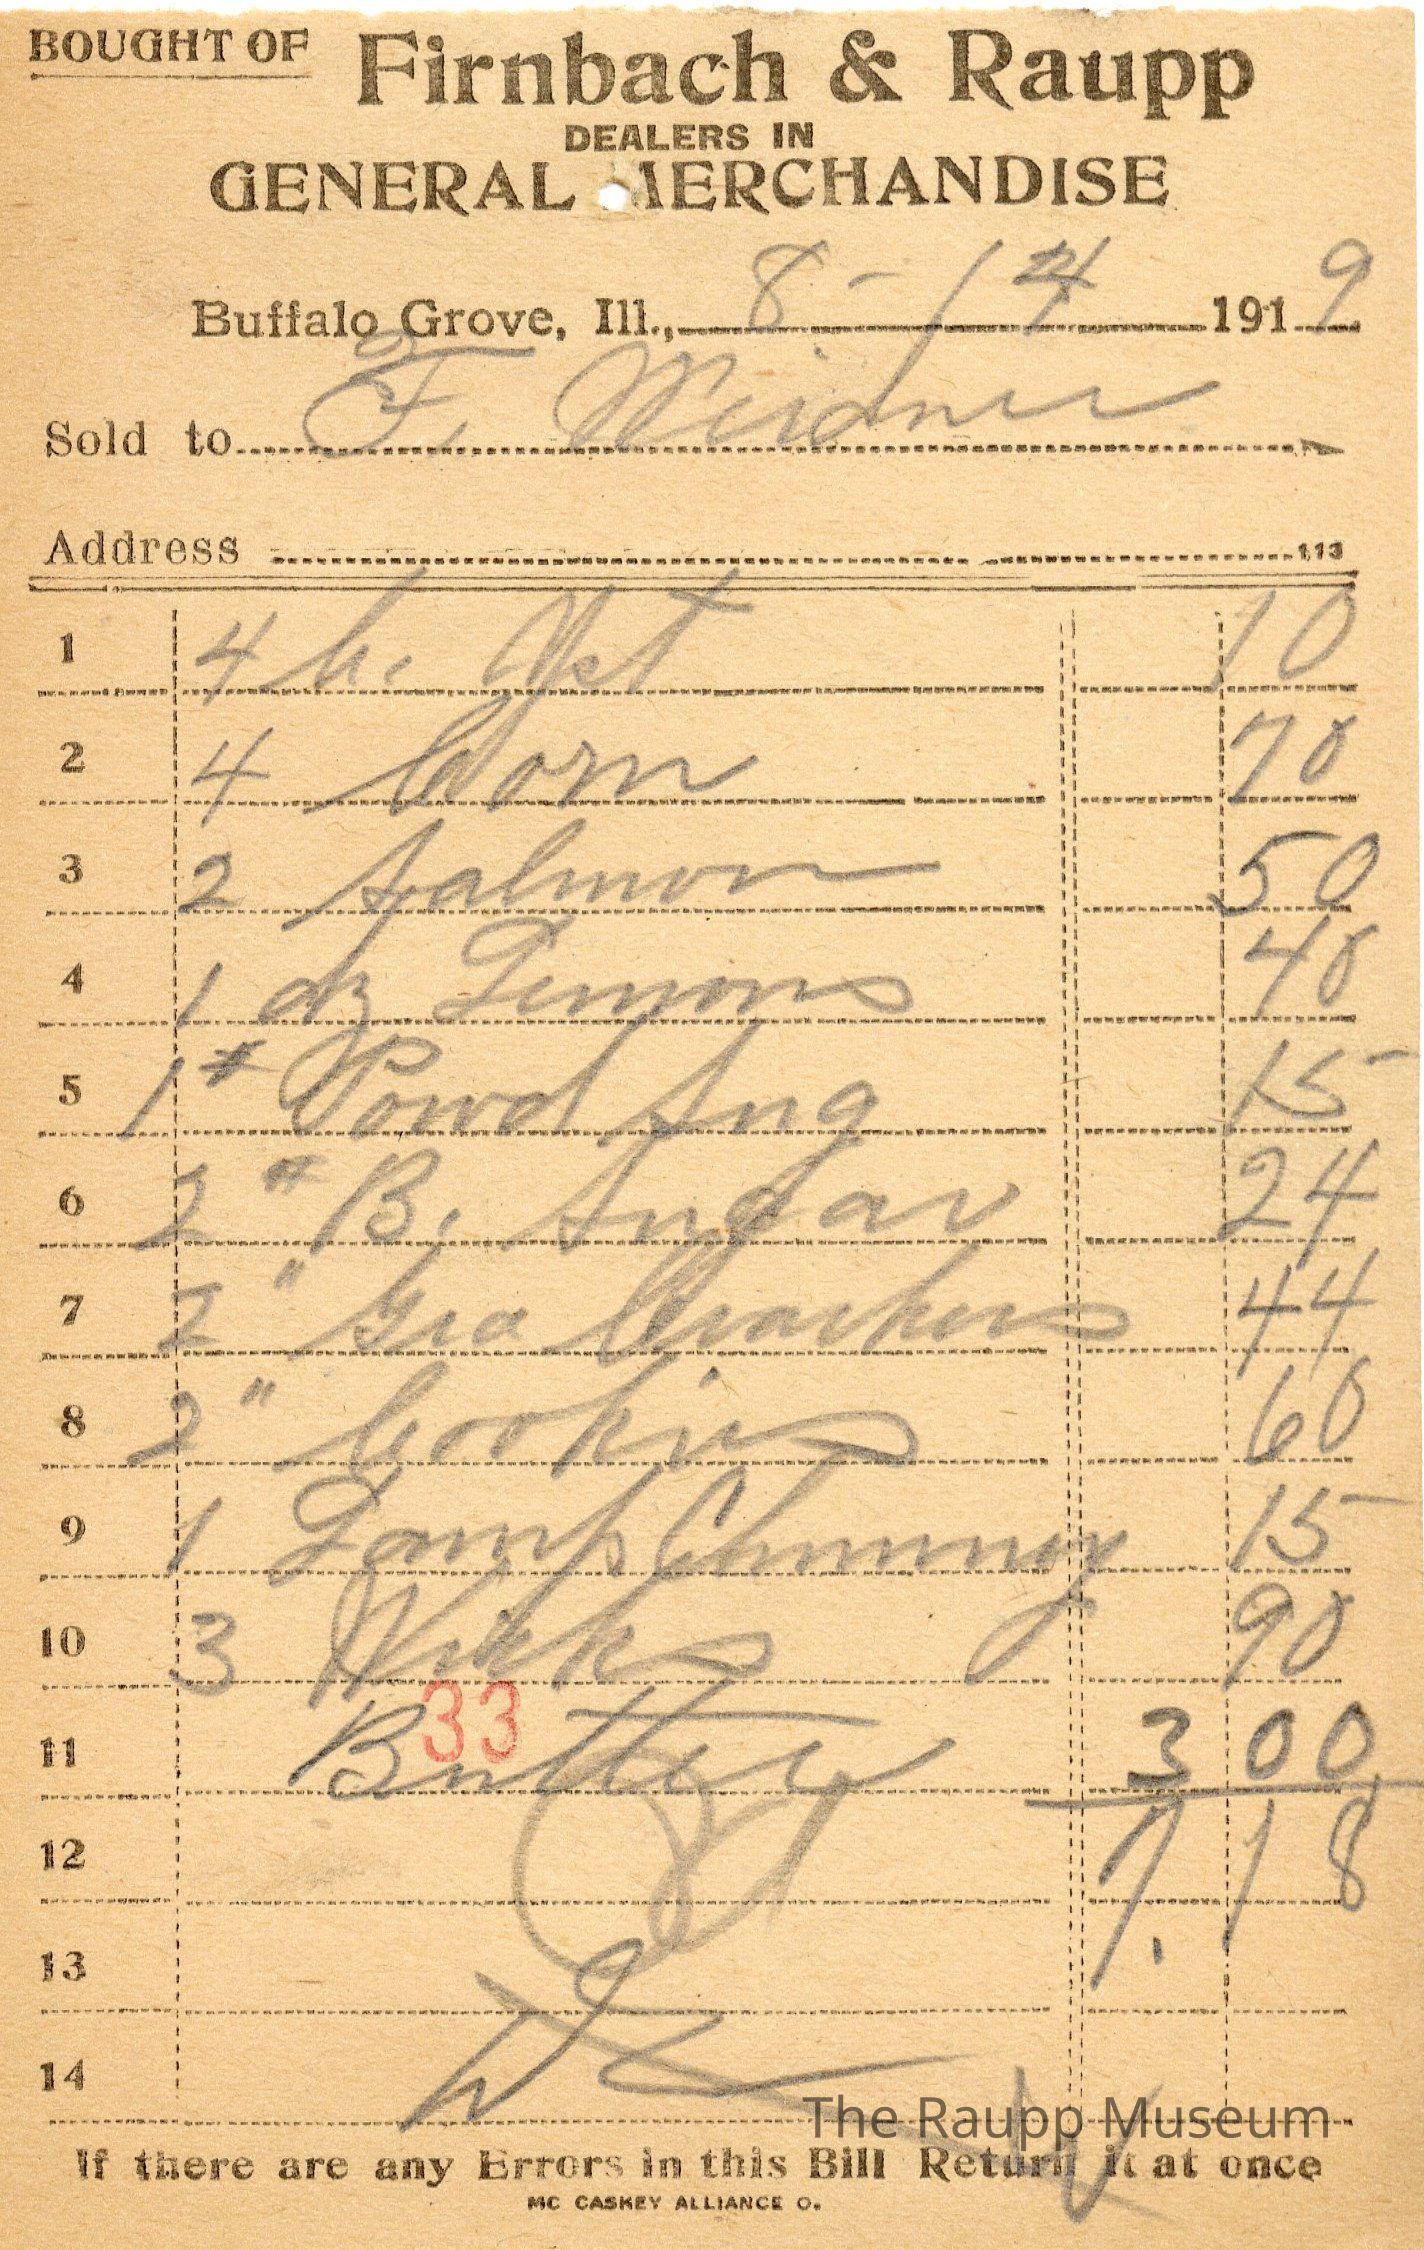 BOUGHT OF Firnbach & Raupp
DEALERS IN
GENERAL MERCHANDISE
Buffalo Grove, Ill., 8-14 1919
Sold to F. Weidner
Address 113
1 4 10
2 4 Corn 70
3 2 Salmon 50
4 1 dz Lemons 40
5 1 # Powd Sug 15
6 2 # B. Sugar 24
7 2 " Gra Crackers 44
8 2 " Cookies 60
9 1 Lamp Chimney 15
10 3 90
33
11 Butter 3 00
12 7.18
13
14
The Raupp Museum
If there are any Errors in this Bill Return it at once
MC CASKEY ALLIANCE O.